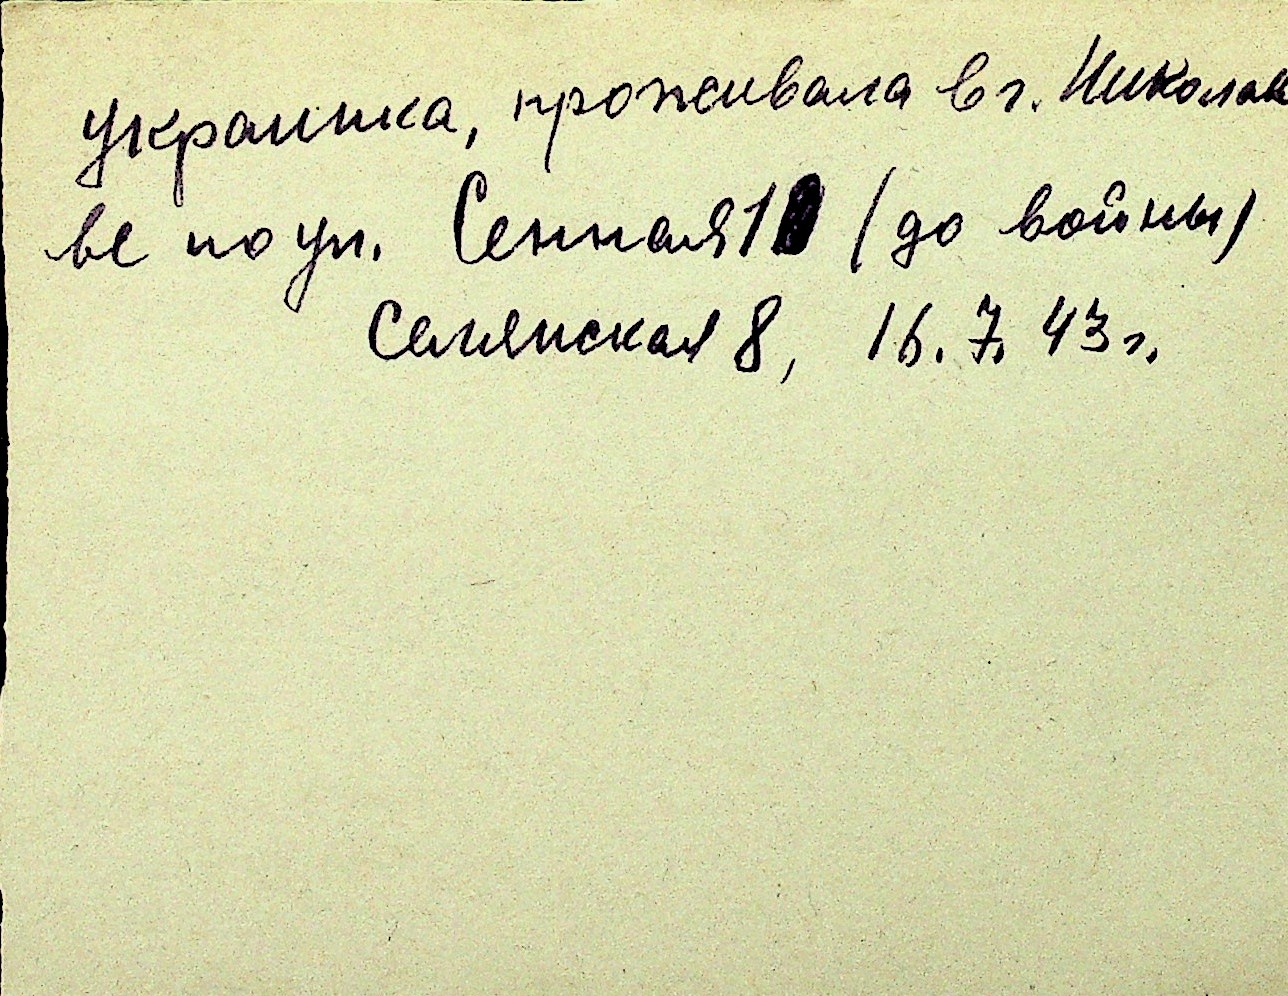 украинка, проживала в г. Николае
ве по ул. Сенная 1 (до войны)
Селянская 8, 16.7.43 г.